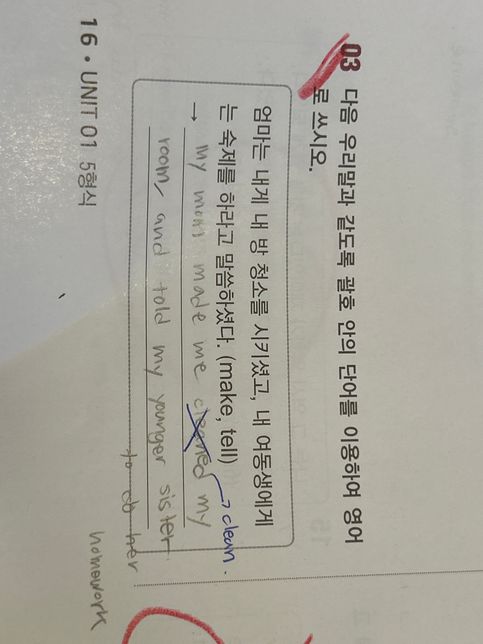 03 다음 우리말과 같도록 괄호 안의 단어를 이용하여 영어
로 쓰시오.
엄마는 내게 내 방 청소를 시키셨고, 내 여동생에게
는 숙제를 하라고 말씀하셨다. (make, tell)
→ My mom made me cleaned my
→ clean.
room, and told my younger sister
to do her
homework
16 • UNIT 01 5형식